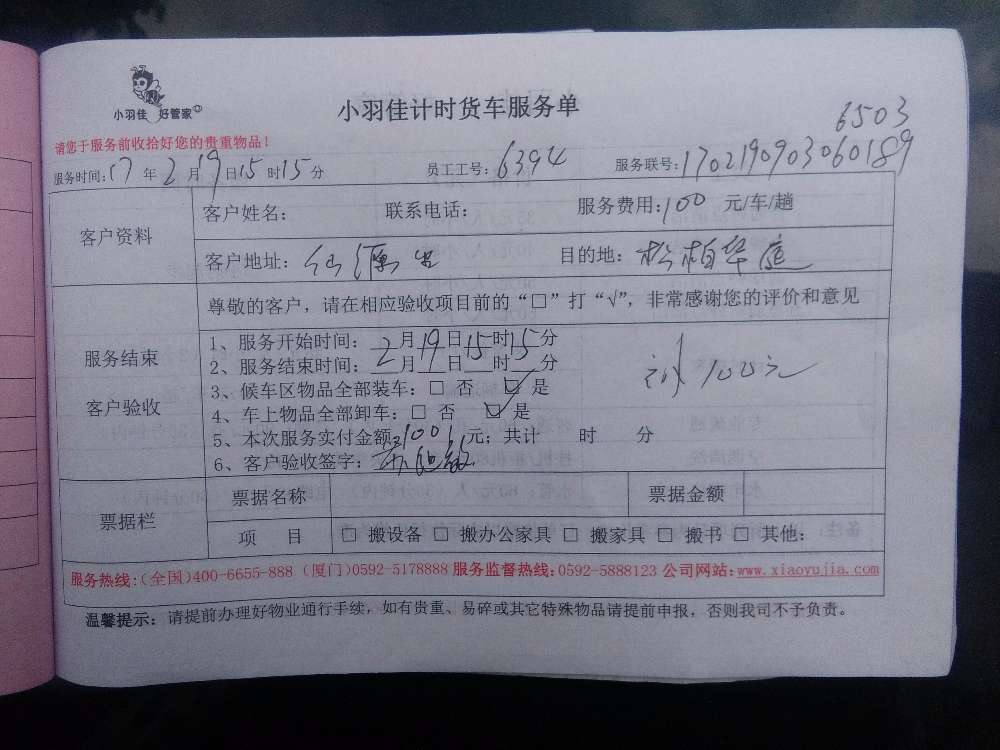 小羽佳 好管家
小羽佳计时货车服务单
6503
请您于服务前收拾好您的贵重物品！
服务时间：17年2月19日15时15分 员工工号：6394 服务联号：1702190903060189
客户资料
客户姓名： 联系电话： 服务费用：100 元/车/趟
客户地址：仙 目的地：松柏华庭
尊敬的客户，请在相应验收项目前的“□”打“√”，非常感谢您的评价和意见
服务结束
客户验收
1、服务开始时间：2月19日15时15分
2、服务结束时间：___月___日___时___分
3、候车区物品全部装车：□ 否 ☑ 是
4、车上物品全部卸车：□ 否 ☑ 是
5、本次服务实付金额：100元；共计 时 分
6、客户验收签字：
100元
票据栏
票据名称 票据金额
项 目 □ 搬设备 □ 搬办公家具 □ 搬家具 □ 搬书 □ 其他：
服务热线：（全国）400-6655-888（厦门）0592-5178888 服务监督热线：0592-5888123 公司网站：www.xiaoyujia.com
温馨提示：请提前办理好物业通行手续，如有贵重、易碎或其它特殊物品请提前申报，否则我司不予负责。